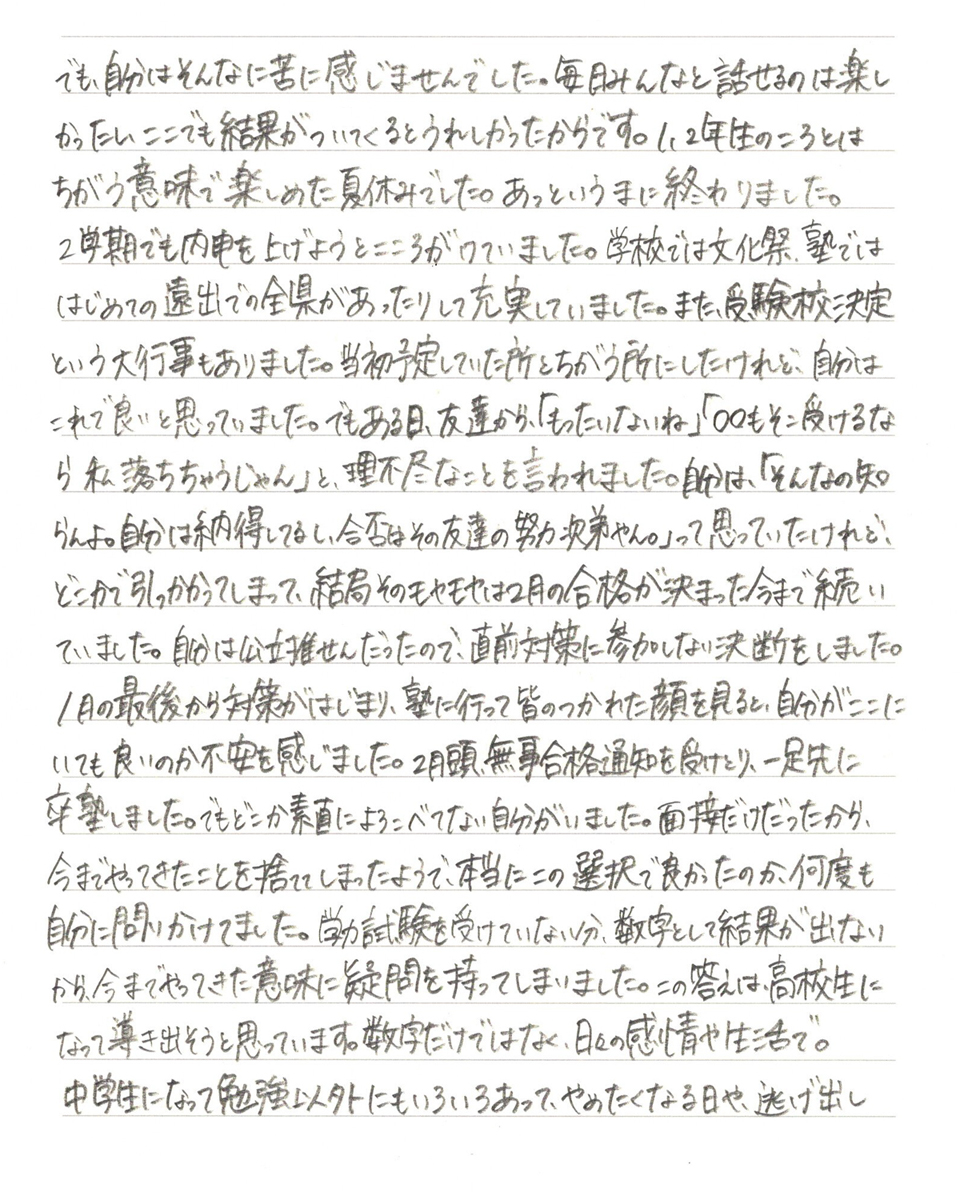 でも、自分はそんなに苦に感じませんでした。毎日みんなと話せるのは楽し
かったし、ここでも結果がついてくるとうれしかったからです。1、2年生のころとは
ちがう意味で楽しめた夏休みでした。あっというまに終わりました。
2学期でも内申を上げようとこころがけていました。学校では文化祭、塾では
はじめての遠出での全県があったりして充実していました。また、受験校決定
という大行事もありました。当初予定していた所とちがう所にしたけれど、自分は
これで良いと思っていました。でもある日、友達から、「もったいないね」「〇〇もそこ受けるな
ら私落ちちゃうじゃん」と、理不尽なことを言われました。自分は、「そんなの知
らんよ。自分は納得してるし、合否はその友達の努力次第やん。」って思っていたけれど、
どこかで引っかかってしまって、結局そのモヤモヤは2月の合格が決まった今まで続い
ていました。自分は公立推せんだったので、直前対策に参加しない決断をしました。
1月の最後から対策がはじまり、塾に行って皆のつかれた顔を見ると、自分がここに
いても良いのか不安を感じました。2月頭、無事合格通知を受けとり、一足先に
卒塾しました。でもどこか素直によろこべてない自分がいました。面接だけだったから、
今までやってきたことを捨ててしまったようで、本当にこの選択で良かったのか、何度も
自分に問いかけてました。学力試験を受けていない分、数字として結果が出ない
から、今までやってきた意味に疑問を持ってしまいました。この答えは、高校生に
なって導き出そうと思っています。数字だけではなく、日々の感情や生活で。
中学生になって勉強以外にもいろいろあって、やめたくなる日や、逃げ出し